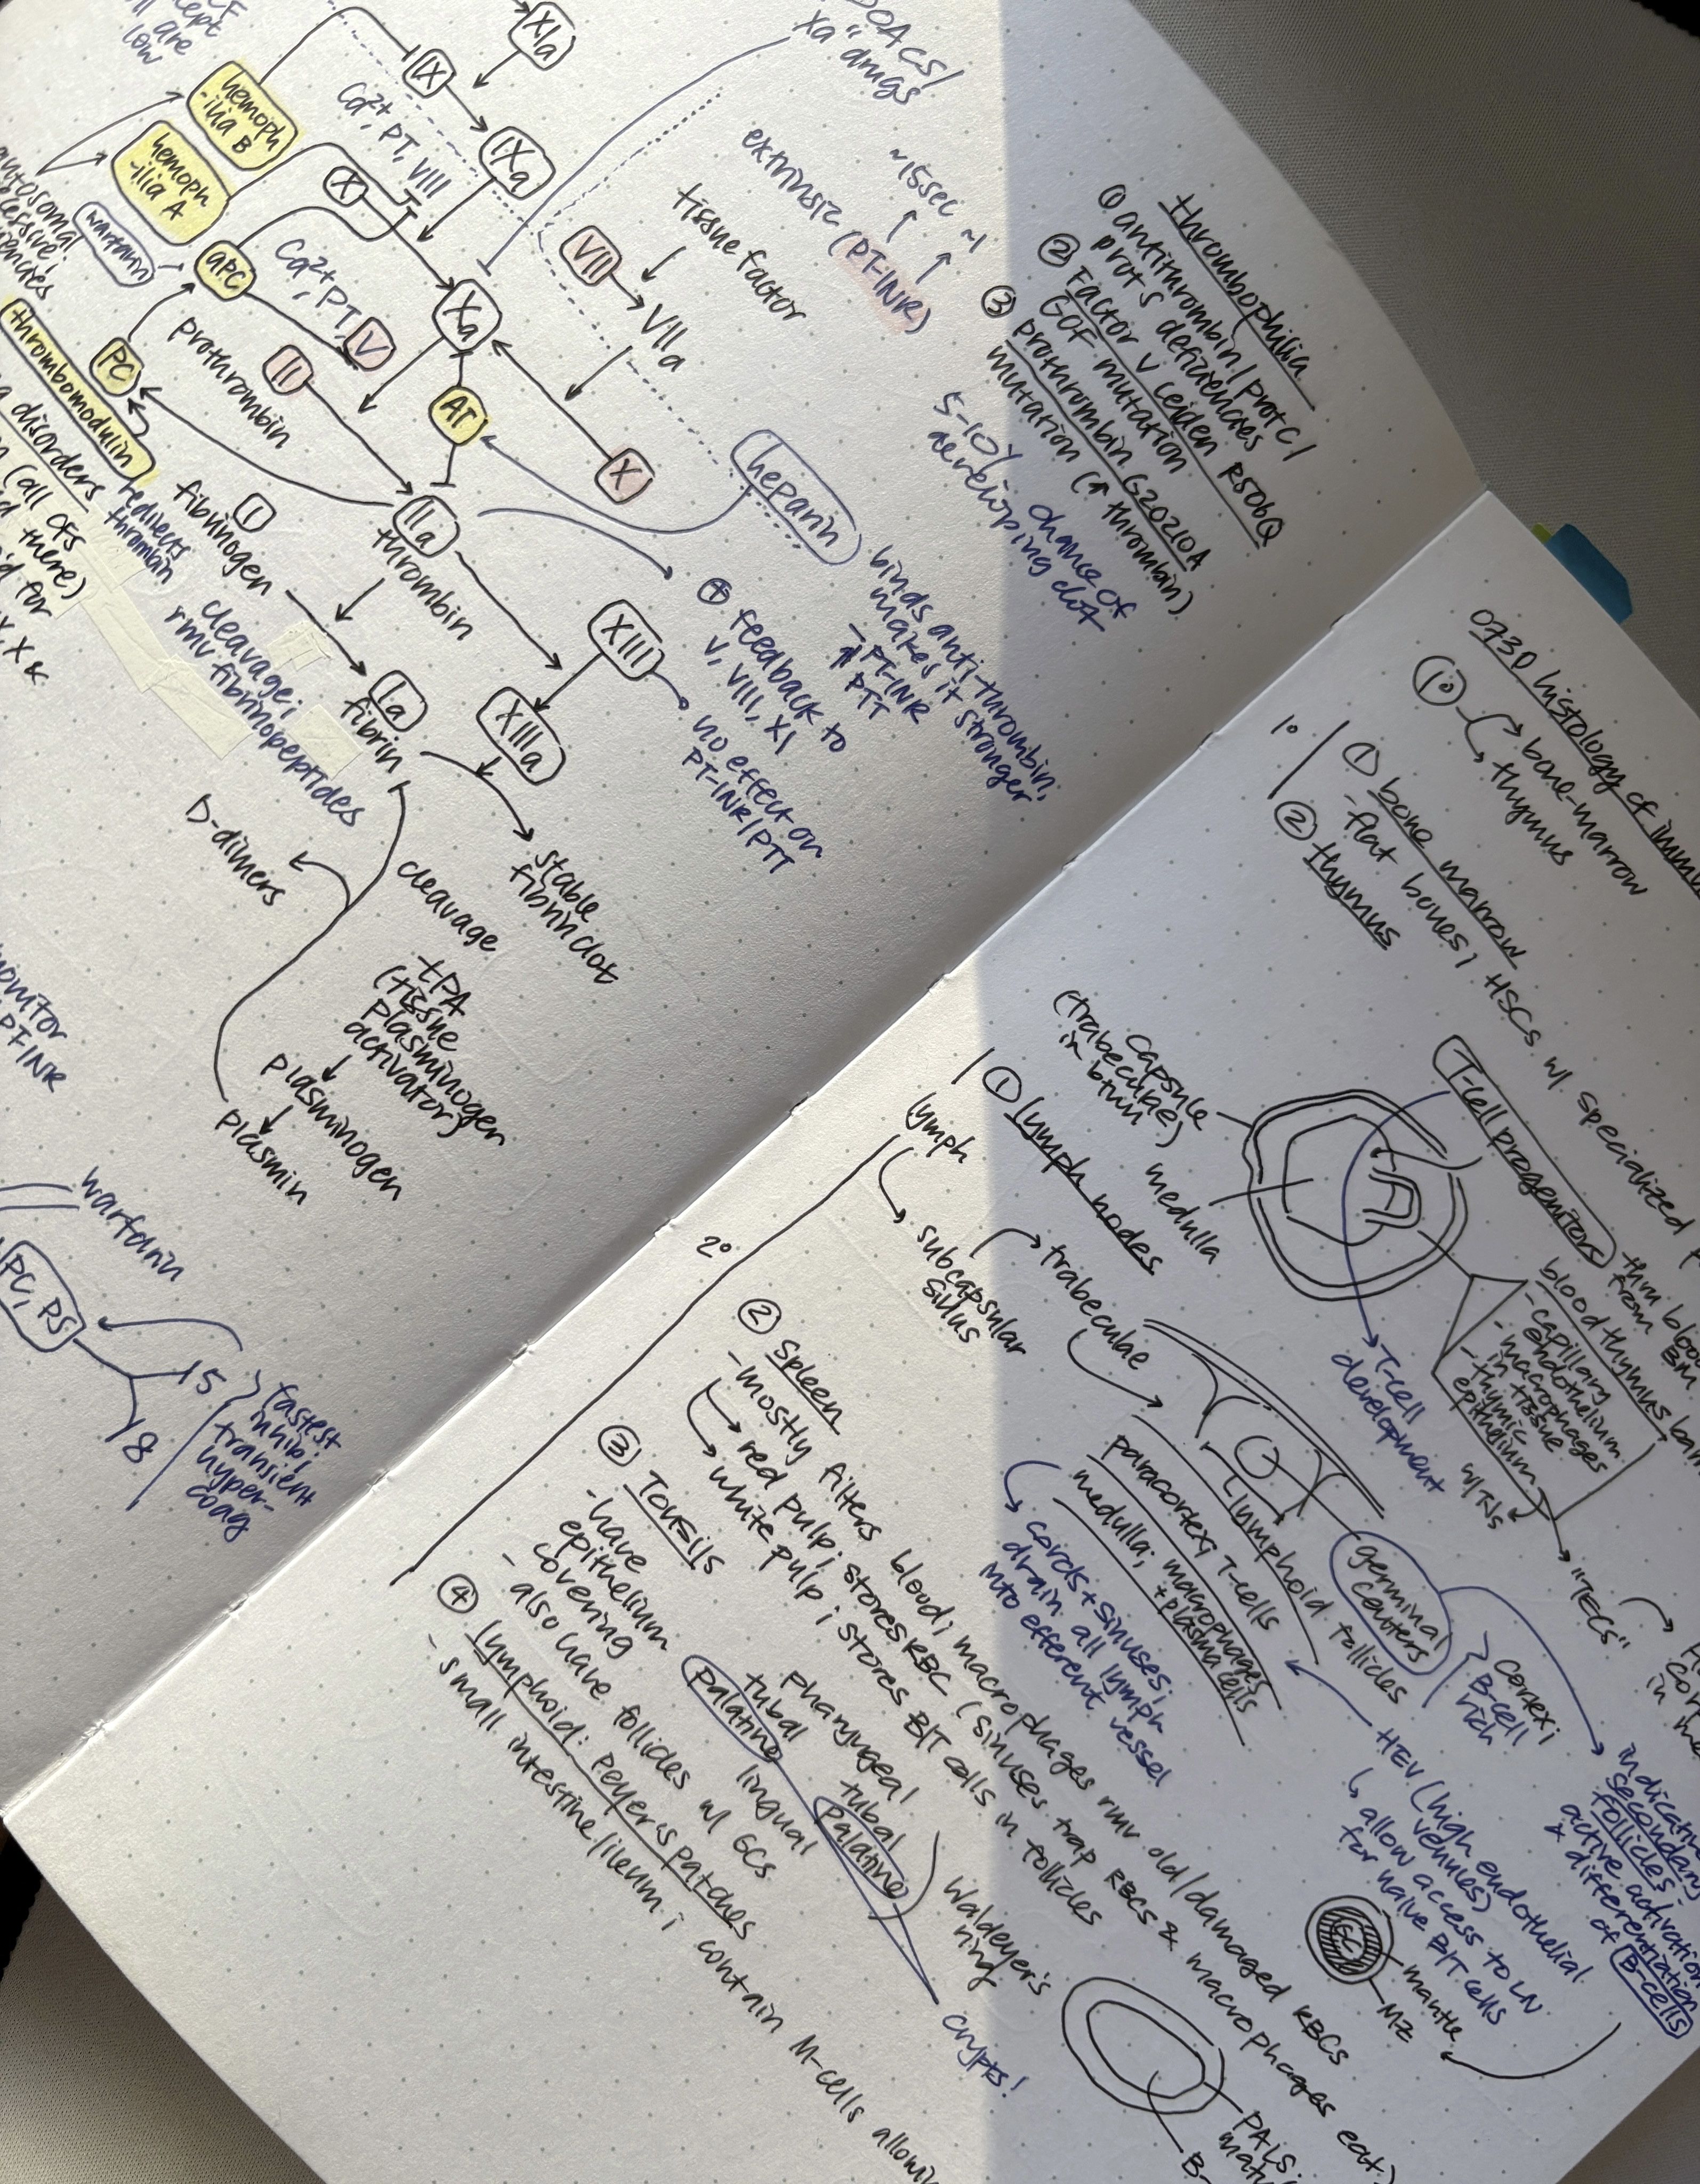 are
low
hemoph
-ilia B
hemoph
-ilia A
warfarin
aPC
PC
thrombomodulin
redirects
thrombin
disorders
(all CFs
there)
for
X &
IX
XIa
Ca²⁺, PT, VIII
IXa
X
Ca²⁺, PT,
V
Xa
prothrombin
II
AT
IIa
thrombin
I
fibrinogen
cleavage;
rmv fibrinopeptides
Ia
fibrin
XIII
XIIIa
stable
fibrin clot
D-dimers
cleavage
tPA
(tissue
plasminogen
activator)
plasminogen
plasmin
DOACS/
Xa "drugs
extrinsic (PT-INR)
~15sec
~1
tissue factor
VII
VIIa
X
heparin
binds anti-thrombin,
makes it stronger
- ↑ PT-INR
↑ PTT
⊕ feedback to
V, VIII, XI
no effect on
PT-INR/PTT
thrombophilia
① antithrombin/prot C/
prot S deficiencies
② Factor V Leiden R506Q
GOF mutation
③ prothrombin G20210A
mutation (↑ thrombin)
5-10%
chance of
developing clot
monitor
PT-INR
warfarin
PC, PS
15
18
fastest
inhib;
transient
hyper-
coag
0730 histology of immu
1°
bone-marrow
thymus
1°
① bone marrow
- flat bones, HSCs w/ specialized
② thymus
capsule
(trabeculae
in btwn)
medulla
T-cell progenitors
thru bloo
from BM
T-cell
development
blood thymus bar
- capillary
endothelium
- macrophages
in tissue
- thymic
epithelium
w/ TJs
"TECs"
2°
① lymph nodes
lymph
subcapsular
sinus
trabeculae
lymphoid follicles
paracortex; T-cells
medulla; macrophages
+ plasma cells
cords + sinuses;
drain all lymph
into efferent vessel
germinal
centers
cortex;
B-cell
rich
indicative
secondary
follicles;
active activation
& differentiation
of B-cells
HEV (high endothelial
venules)
allow access to LN
for naive B/T cells
GC
mantle
MZ
② Spleen
- mostly filters blood; macrophages rmv old/damaged RBCs
red pulp; stores RBC (sinuses trap RBCs & macrophages eat)
white pulp; stores B/T cells in follicles
PALS
B-
③ Tonsils
- have
epithelium
covering
- also have follicles w/ GCs
pharyngeal
tubal tubal
palatine palatine
lingual
Waldeyer's
ring
crypts!
④ lymphoid: Peyer's patches
- small intestine/ileum; contain M-cells allowin